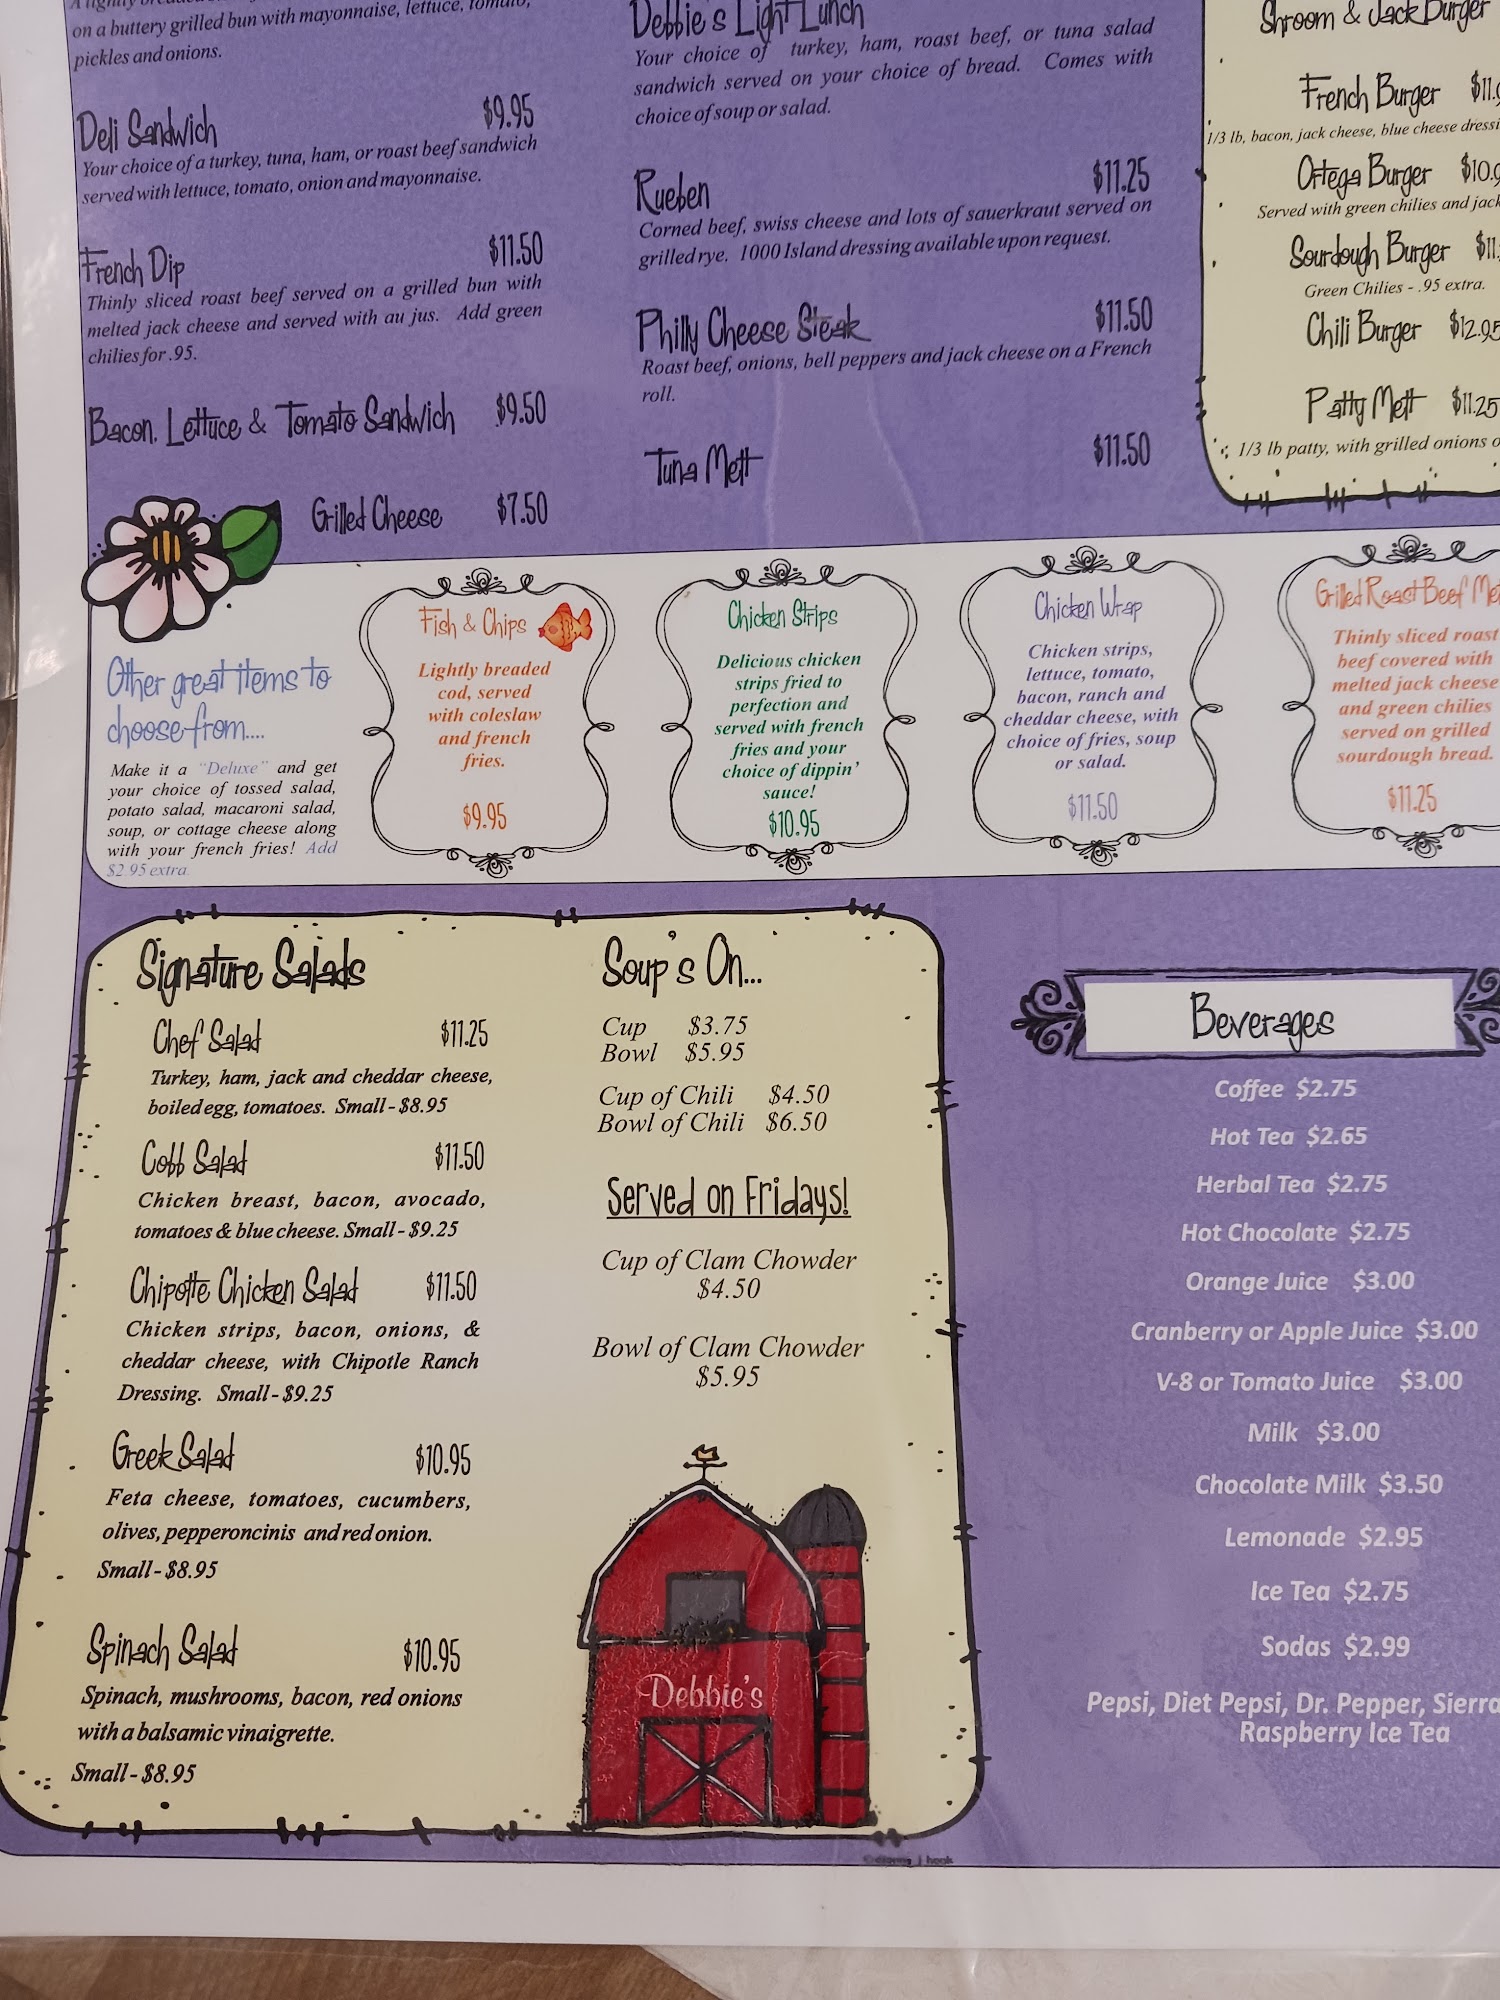 on a buttery grilled bun with mayonnaise, lettuce, tomato,
pickles and onions.
Deli Sandwich $9.95
Your choice of a turkey, tuna, ham, or roast beef sandwich
served with lettuce, tomato, onion and mayonnaise.
French Dip $11.50
Thinly sliced roast beef served on a grilled bun with
melted jack cheese and served with au jus. Add green
chilies for .95.
Bacon, Lettuce & Tomato Sandwich $9.50
Grilled Cheese $7.50
Debbie's Light Lunch
Your choice of turkey, ham, roast beef, or tuna salad
sandwich served on your choice of bread. Comes with
choice of soup or salad.
Rueben $11.25
Corned beef, swiss cheese and lots of sauerkraut served on
grilled rye. 1000 Island dressing available upon request.
Philly Cheese Steak $11.50
Roast beef, onions, bell peppers and jack cheese on a French
roll.
Tuna Melt $11.50
Shroom & Jack Burger
French Burger
1/3 lb, bacon, jack cheese, blue cheese
Ortega Burger
Served with green chilies and jack
Sourdough Burger
Green Chilies - .95 extra.
Chili Burger $12.95
Patty Melt $11.25
1/3 lb patty, with grilled onions
Other great items to
choose from....
Make it a "Deluxe" and get
your choice of tossed salad,
potato salad, macaroni salad,
soup, or cottage cheese along
with your french fries! Add
$2.95 extra.
Fish & Chips
Lightly breaded
cod, served
with coleslaw
and french
fries.
$9.95
Chicken Strips
Delicious chicken
strips fried to
perfection and
served with french
fries and your
choice of dippin'
sauce!
$10.95
Chicken Wrap
Chicken strips,
lettuce, tomato,
bacon, ranch and
cheddar cheese, with
choice of fries, soup
or salad.
$11.50
Grilled Roast Beef
Thinly sliced roast
beef covered with
melted jack cheese
and green chilies
served on grilled
sourdough bread.
$11.25
Signature Salads
Chef Salad $11.25
Turkey, ham, jack and cheddar cheese,
boiled egg, tomatoes. Small - $8.95
Cobb Salad $11.50
Chicken breast, bacon, avocado,
tomatoes & blue cheese. Small - $9.25
Chipotle Chicken Salad $11.50
Chicken strips, bacon, onions, &
cheddar cheese, with Chipotle Ranch
Dressing. Small - $9.25
Greek Salad $10.95
Feta cheese, tomatoes, cucumbers,
olives, pepperoncinis and red onion.
Small - $8.95
Spinach Salad $10.95
Spinach, mushrooms, bacon, red onions
with a balsamic vinaigrette.
Small - $8.95
Soup's On...
Cup $3.75
Bowl $5.95
Cup of Chili $4.50
Bowl of Chili $6.50
Served on Fridays!
Cup of Clam Chowder
$4.50
Bowl of Clam Chowder
$5.95
Debbie's
Beverages
Coffee $2.75
Hot Tea $2.65
Herbal Tea $2.75
Hot Chocolate $2.75
Orange Juice $3.00
Cranberry or Apple Juice $3.00
V-8 or Tomato Juice $3.00
Milk $3.00
Chocolate Milk $3.50
Lemonade $2.95
Ice Tea $2.75
Sodas $2.99
Pepsi, Diet Pepsi, Dr. Pepper, Sierra
Raspberry Ice Tea